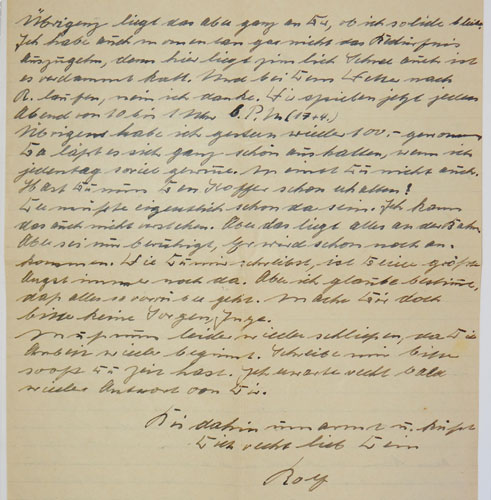 Übrigens liegt das aber ganz an Dir, ob ich solide bleibe.
Ich habe auch momentan gar nicht das Bedürfnis
auszugehn, denn hier liegt zimlich Schnee auch ist
es verdammt kalt. Und bei dem Wetter nach
R. laufen, nein ich danke. Wir spielen jetzt jeden
Abend von 10 bis 1 Uhr (17+4.)
Übrigens habe ich gestern wieder 100,- gewonnen
Da läßt es sich ganz schön aushalten, wenn ich
jeden tag soviel gewinne. Meinst Du nicht auch.
Hast Du nun den Koffer schon erhalten?
Der müßte eigentlich schon da sein. Ich kann
das auch nicht verstehen. Aber das liegt alles an der Bahn.
Aber sei nur beruhigt, er wird schon noch an-
kommen. Wie Du mir schreibst, ist Deine größte
Angst immer noch da. Aber ich glaube bestimmt,
daß alles so vorrüber geht. Mache Dir doch
bitte keine Sorgen, Inge.
Muß nun leider wieder schließen, da die
Arbeit wieder beginnt. Schreibe mir bitte
sooft Du Zeit hast. Ich erwarte recht bald
wieder Antwort von Dir.
Bis dahin umarmt u. küßt
Dich recht lieb Dein
Rolf